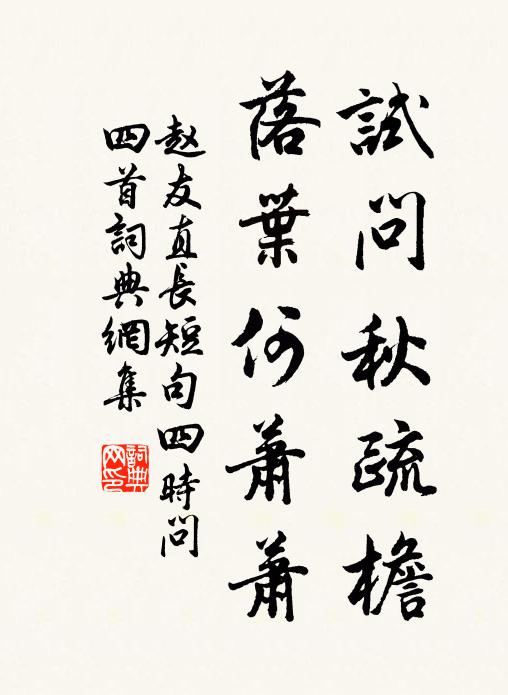 試問秋疏檐
落葉何蕭蕭
赵友直長短句四時問
四首詞典網集
詞典
网印